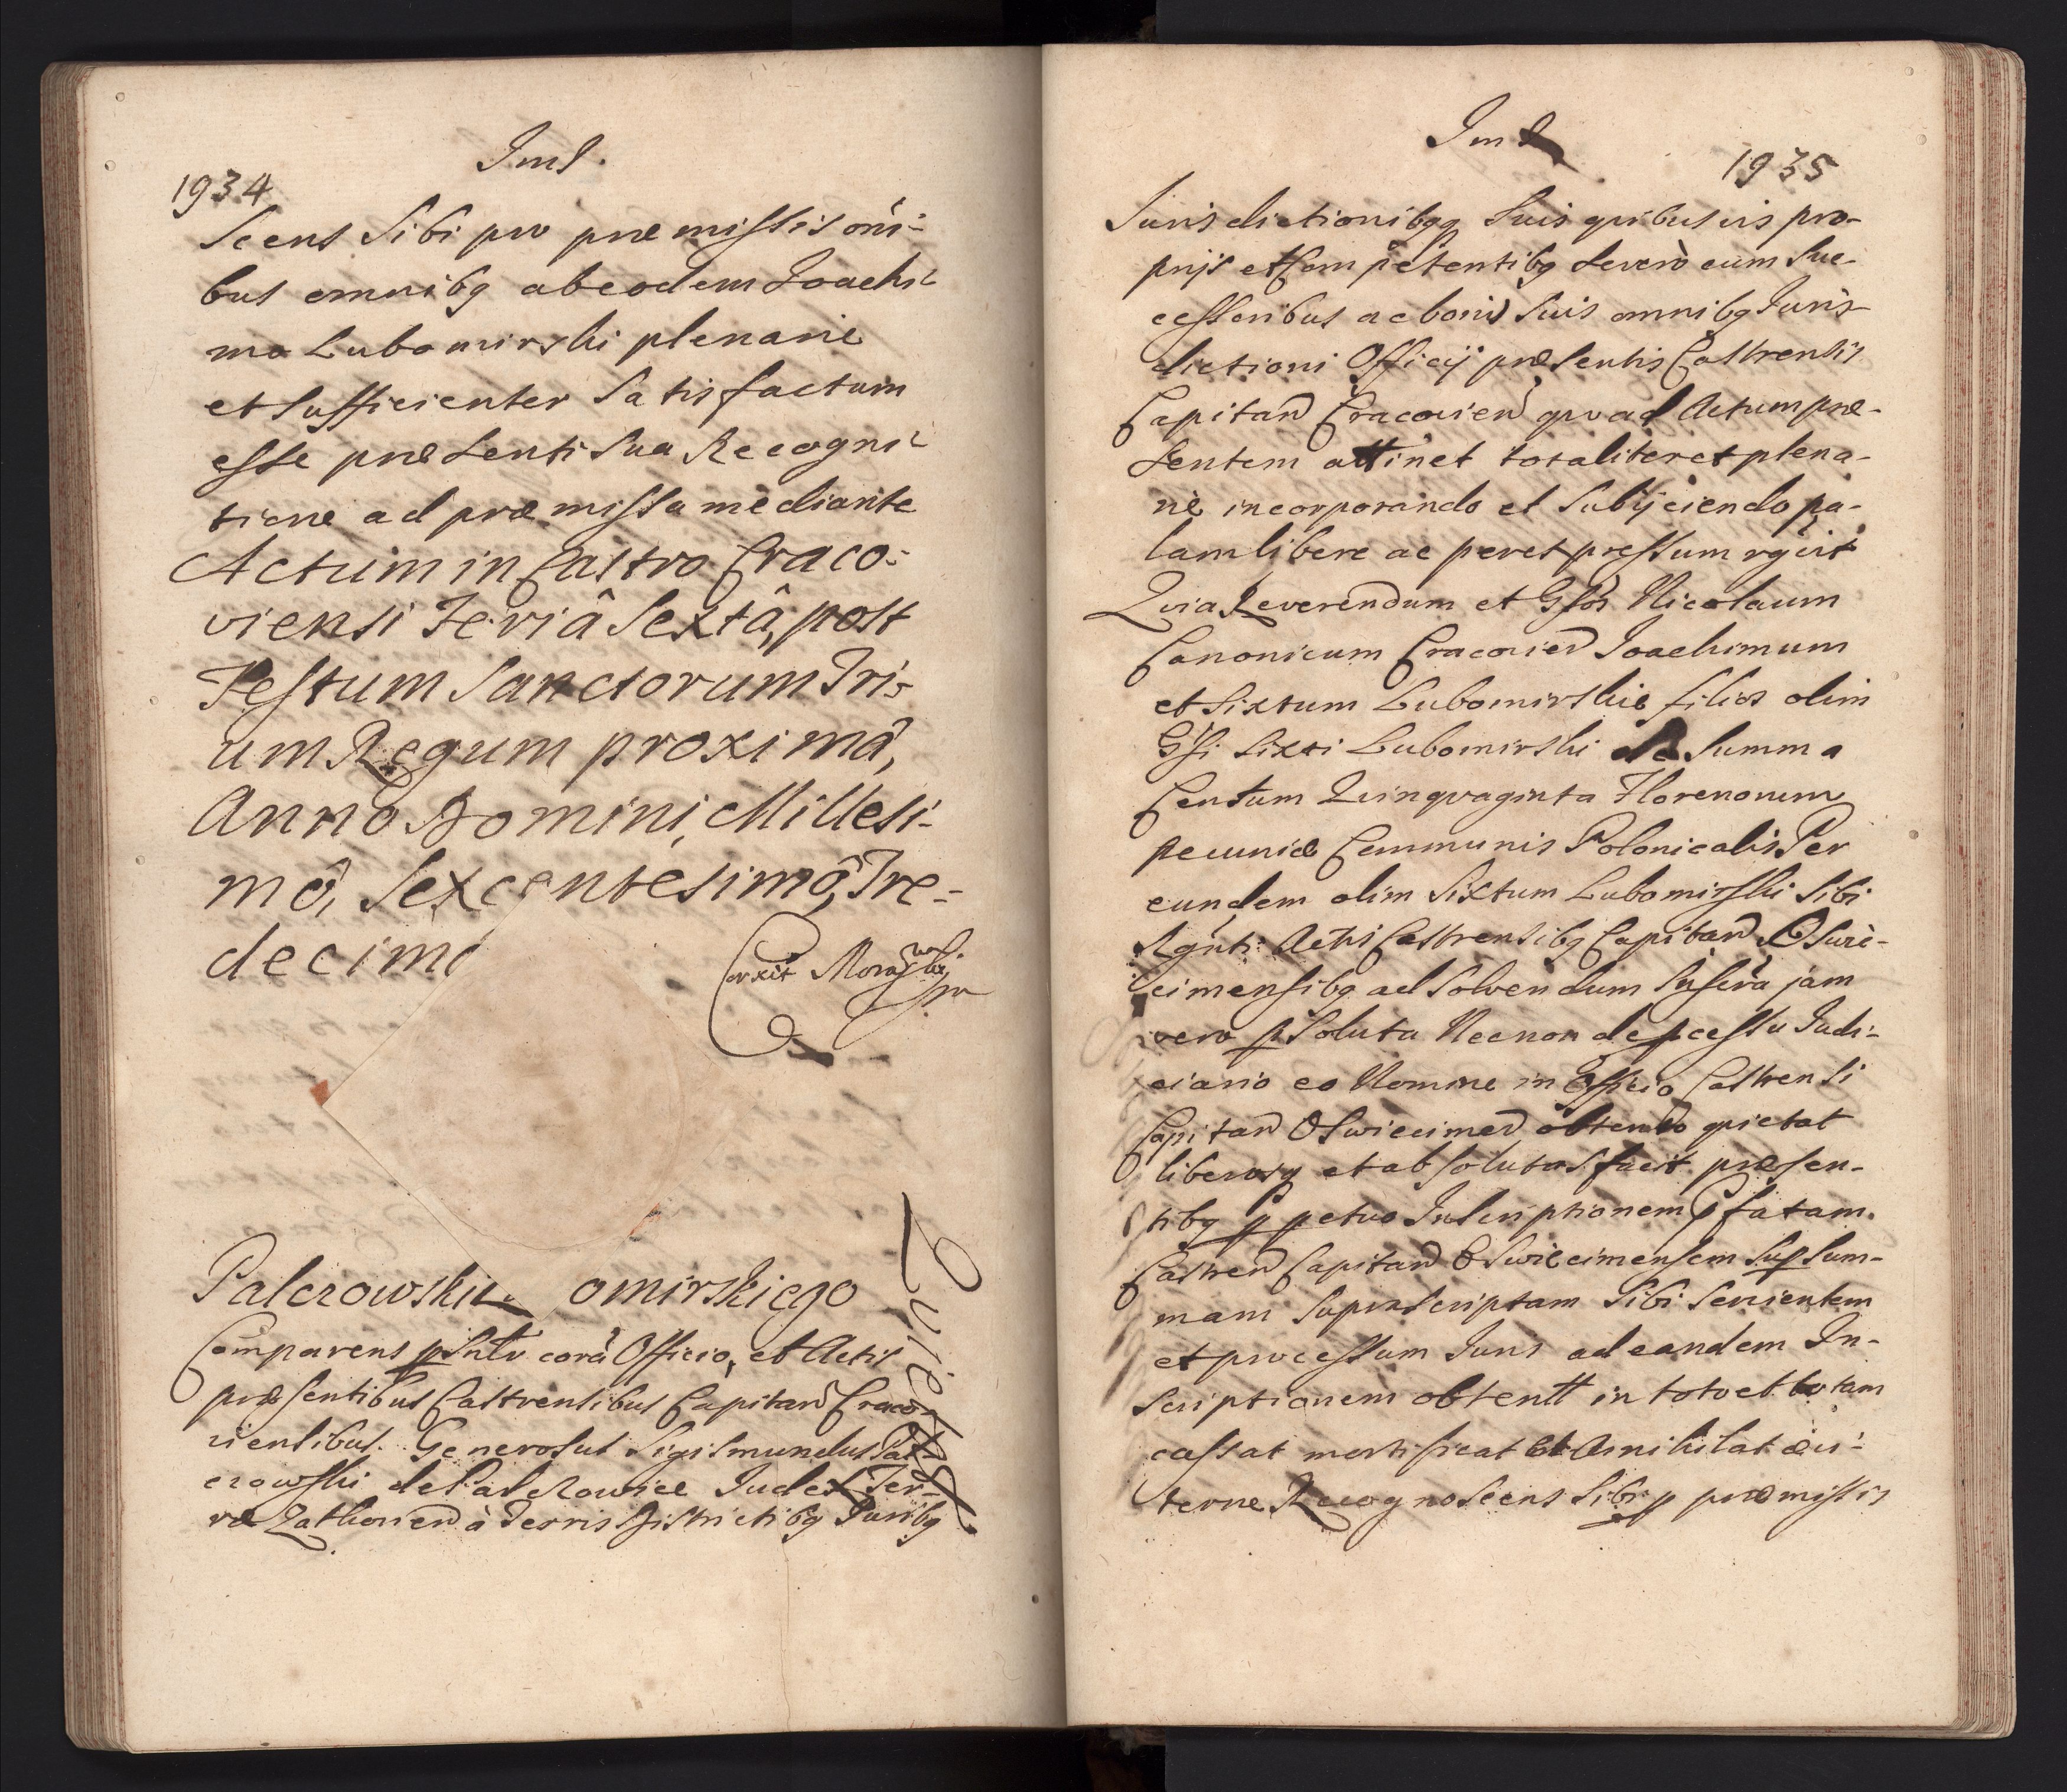 Iml.
1934
Scens Sibi pro præmissis om̃i-
bus omnibq ab eodem Joachi-
mo Lubomirski plenarie
et Sufficienter Satisfactum
esse præsenti Sua Recogni-
tione ad præmissa mediante
Actum in Castro Craco-
viensi Feriâ Sextâ, post
Festum Sanctorum Tri-
um Regum proximâ,
Anno Domini, Millesi-
mô, Sexcentesimô, Tre-
decimo
Corxit
Palczowski omirskiego
Quietat
Comparens psnlr corã Officio, et Actis
præsentibus Castrensibus Capitan Craco-
viensibus. Generosus Sigismundus Pal-
czowski de Palczowice Judex Ter-
ræ Zathorien à Terris Districtibq Juribq
Iml
1935
Jurisdictionibqq Suis quibusvis pro-
prijs et Competentibq Se verò cum Suc-
cessoribus ac bonis Suis omnibq Juris-
dictioni Officij præsentis Castrensis
Capitan Cracovien quoad Actum præ-
sentem attinet totaliter et plena-
rie incorporando et Subijciendo pa-
lam libere ac per expressum rg̃vit
Quia Reverendum et Gsos Nicolaum
Canonicum Cracovien Joachimum
et Sixtum Lubomirskie filios olim
Gsi Sixti Lubomirski de Summa
Centum Quinquaginta Florenorum
pecuniæ Communis Polonicalis Per
eundem olim Sixtum Lubomirski Sibi
Actis Castrensibq Capitan Oswie-
cimensibq ad Solvendum Inscra jam
vero psoluta Necnon de pcessu Judi-
ciario eo Nomine in Officio Castrensi
Capitan Oswiecimen obtento quietat
liberosq et absolutos facit præsen-
tibq ppetuo Inscriptionem Pfatam
Castren Capitan Oswiecimensem Sup Sum-
mam Suprascriptam Sibi Servientem
et processum Juris ad eandem In-
scriptionem obtentt in toto et totam
cassat mortificat et Annihilat ævi-
terne Recognoscens Sibi p præmissis